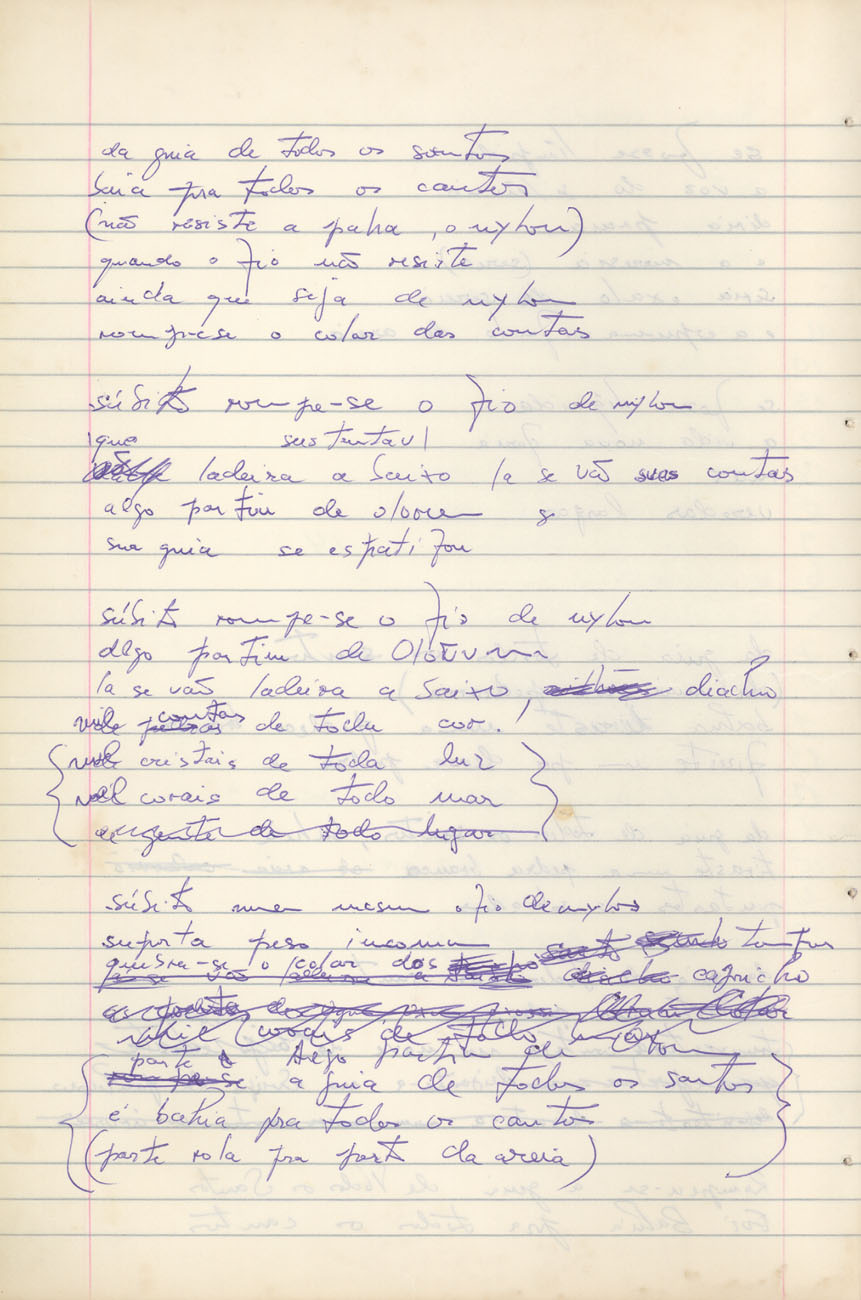 da guia de todos os santos
baia pra todos os cantos
(não resiste a palha, o nylon)
quando o fio não resiste
ainda que seja de nylon
rompe-se o colar das contas
súbito rompe-se o fio de nylon
que sustentava
ladeira a baixo la se vão suas contas
algo partiu de olorum
sua guia se espatifou
súbito rompe-se o fio de nylon
algo partiu de Olorum
la se vão ladeira a baixo, diacho
contas de toda cor!
cristais de toda luz
corais de todo mar
a gente de todo lugar
súbito nem mesmo o fio de nylon
suporta peso incomum tempo
quebra-se o colar dos capricho
corais de todo mar
Algo partiu de
parte a guia de todos os santos
é bahia pra todos os cantos
(parte rola pra parte da areia)